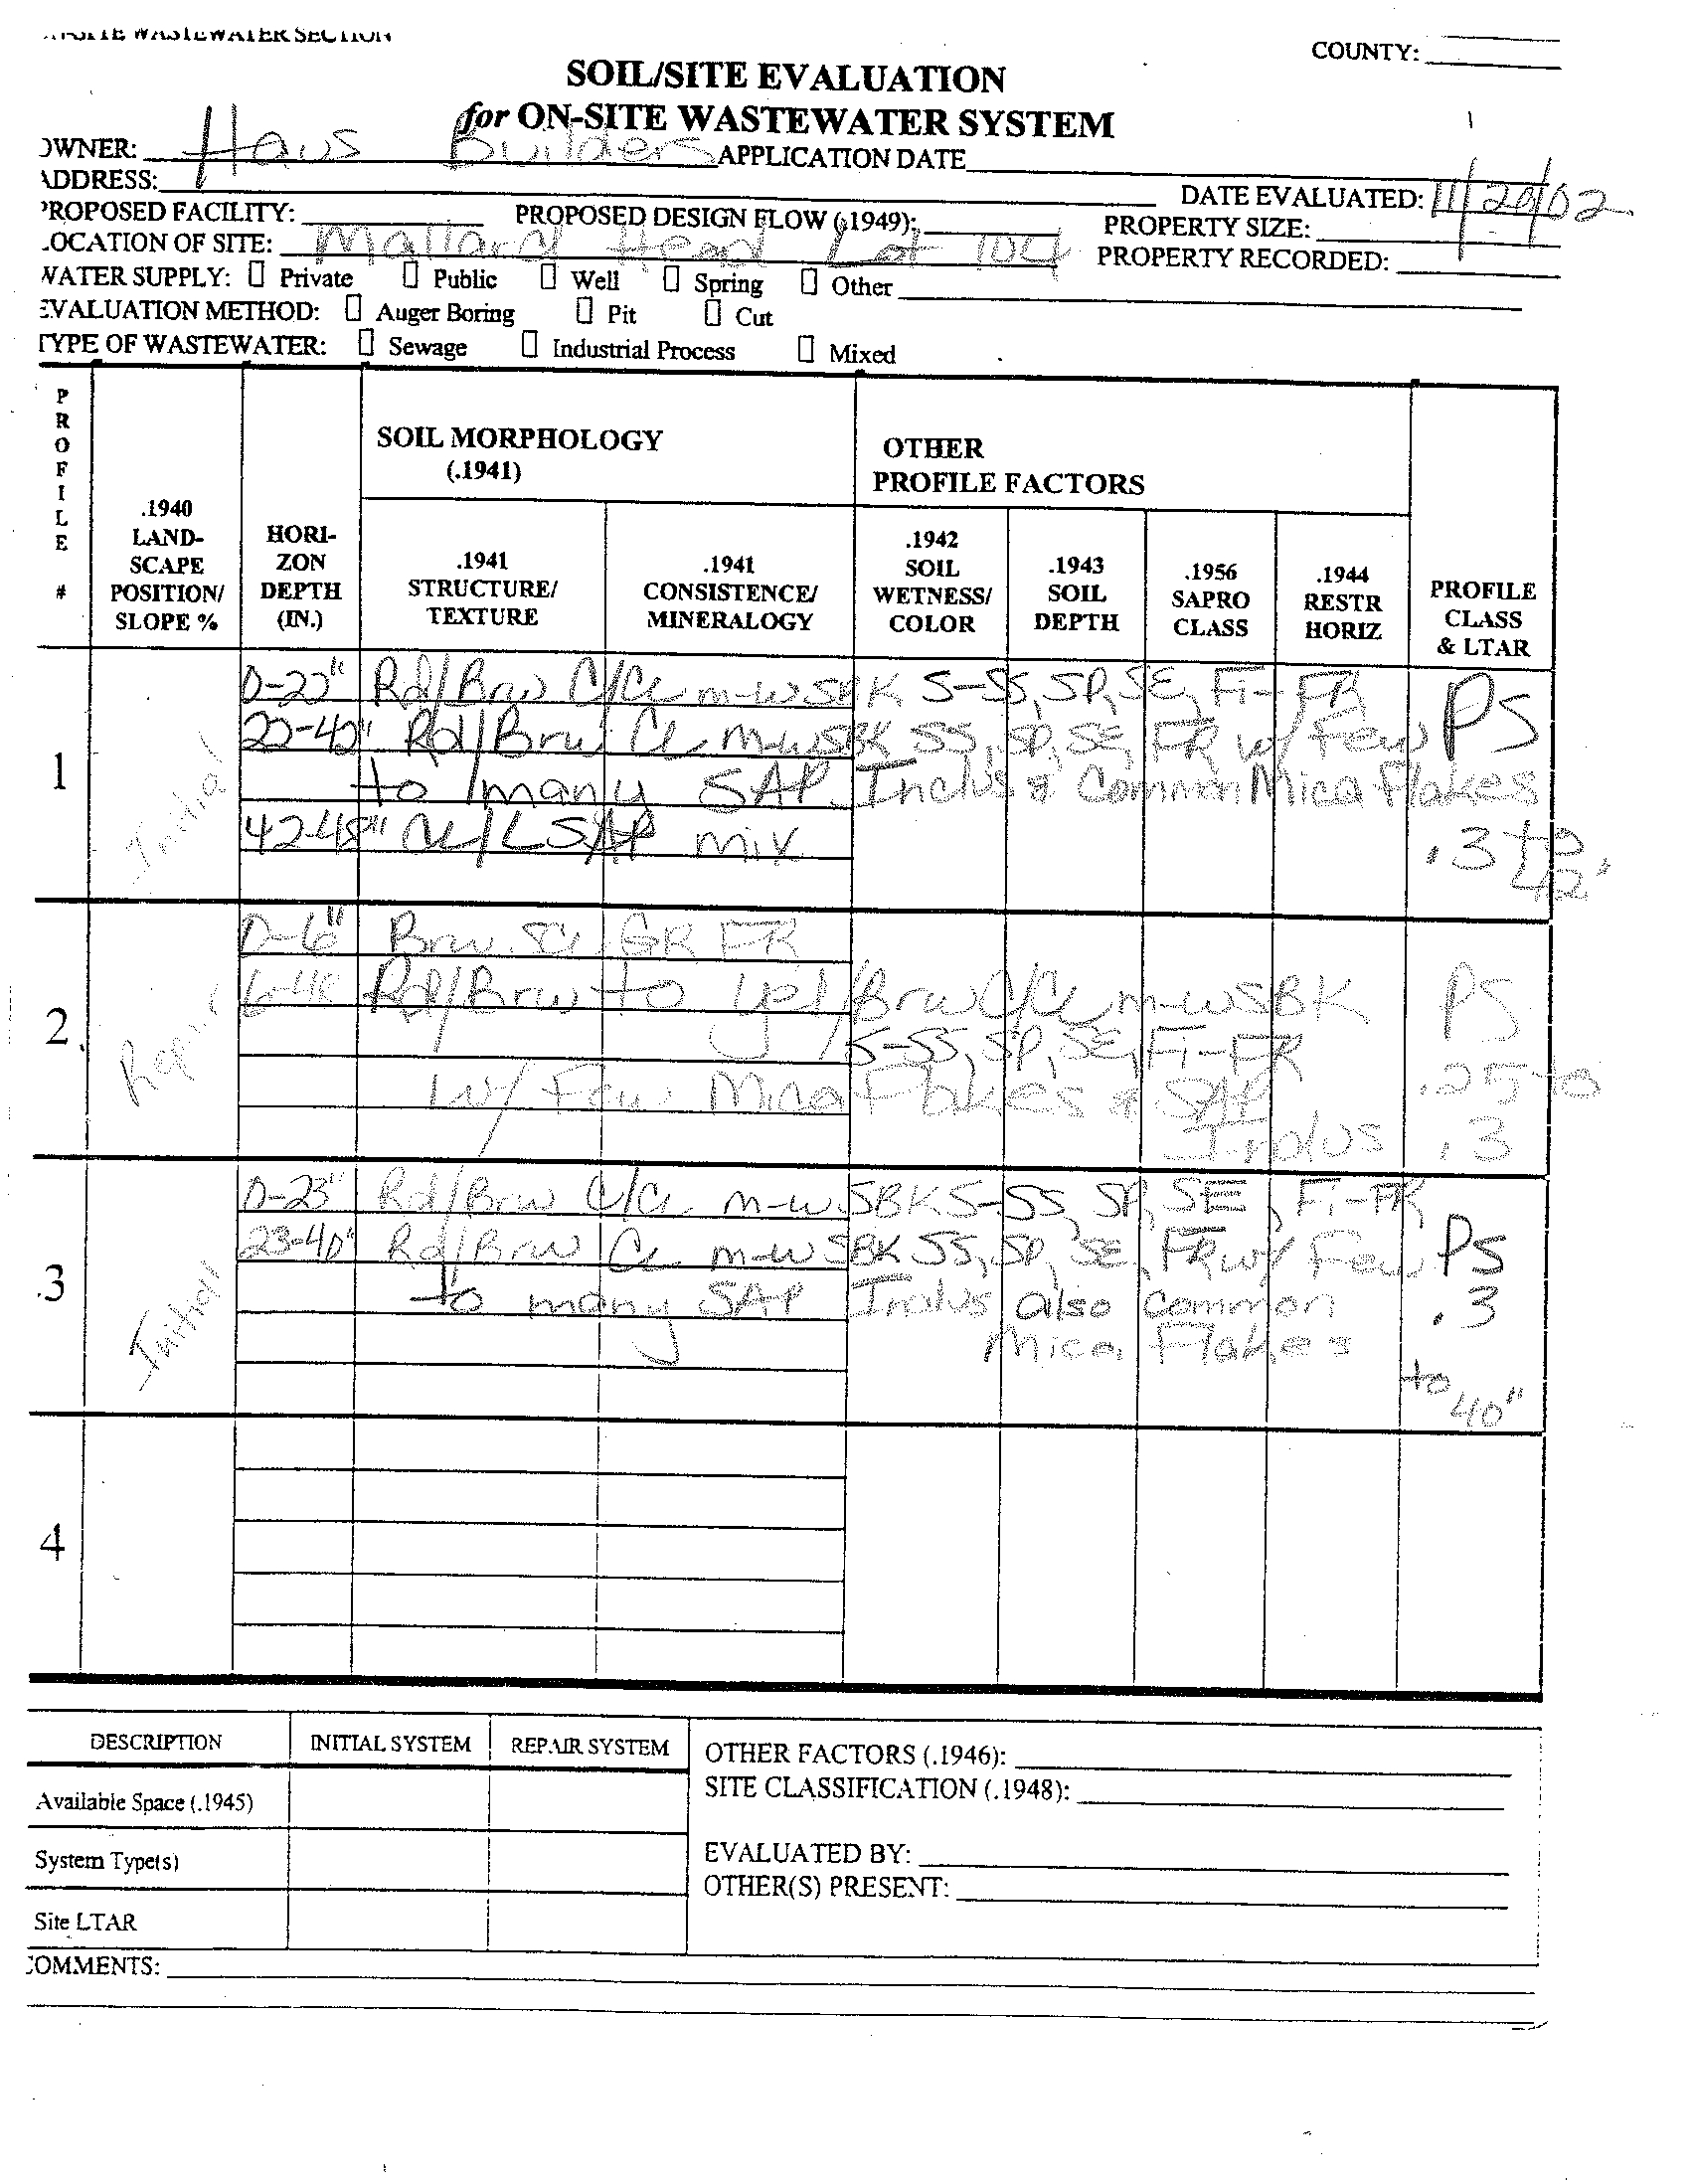 ON-SITE WASTEWATER SECTION
COUNTY:
SOIL/SITE EVALUATION
for ON-SITE WASTEWATER SYSTEM
OWNER: Haus Builders APPLICATION DATE
ADDRESS:
DATE EVALUATED: 11/20/02
PROPOSED FACILITY: PROPOSED DESIGN FLOW (.1949): PROPERTY SIZE:
LOCATION OF SITE: Mallard Head Lot 104 PROPERTY RECORDED:
WATER SUPPLY: Private Public Well Spring Other
EVALUATION METHOD: Auger Boring Pit Cut
TYPE OF WASTEWATER: Sewage Industrial Process Mixed
PROFILE #
.1940 LAND-SCAPE POSITION/ SLOPE %
HORI-ZON DEPTH (IN.)
SOIL MORPHOLOGY
(.1941)
.1941 STRUCTURE/ TEXTURE
.1941 CONSISTENCE/ MINERALOGY
OTHER
PROFILE FACTORS
.1942 SOIL WETNESS/ COLOR
.1943 SOIL DEPTH
.1956 SAPRO CLASS
.1944 RESTR HORIZ
PROFILE CLASS & LTAR
1 Initial
0-22" Rd/Brw C/CL m-wSBK S-SS, SP, SE, Fi-FR PS
22-42" Rd/Brw CL m-wSBK SS, SP, SE, FR w/ Few
to many SAP Inclus & Common Mica Flakes
42-48" CL/L SAP mix .3 to 42"
2 Repair
0-6" Brw. GR FR
6-48 Rd/Brw to Yel/Brw C/CL m-wSBK PS
S-SS, SP, SE, Fi-FR
w/ Few Mica Flakes & SAP .25 to
Inclus .3
3 Initial
0-23" Rd/Brw C/CL m-wSBK S-SS, SP, SE, Fi-FR
23-40" Rd/Brw CL m-wSBK SS, SP, SE, FR w/ Few PS
to many SAP Inclus also Common .3
Mica Flakes
to 40"
4
DESCRIPTION INITIAL SYSTEM REPAIR SYSTEM
Available Space (.1945)
System Type(s)
Site LTAR
OTHER FACTORS (.1946):
SITE CLASSIFICATION (.1948):
EVALUATED BY:
OTHER(S) PRESENT:
COMMENTS: